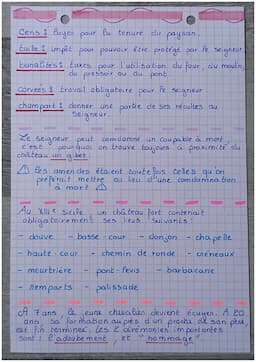 Cens : loyer pour la tenure du paysan.
taille : impôt pour pouvoir être protégé par le seigneur
banalités : taxes pour l'utilisation du four, du moulin,
du pressoir ou du pont.
corvées : travail obligatoire pour le seigneur
champart : donner une partie de ses récoltes au
seigneur.
Le seigneur peut condamné un coupable à mort,
c'est pourquoi on trouve toujours à proximité du
château un gibet.
⚠ Les amendes étaient toutefois celles qu'on
préférait mettre au lieu d'une condamnation
à mort ⚠
Au XIIIe siècle, un château fort contenait
obligatoirement ses lieux suivants :
- douve - basse-cour - donjon - chapelle
- haute-cour - chemin de ronde - créneaux
- meurtrière - pont-levis - barbacane
- remparts - palissade
A 7 ans, le jeune chevalier devient écuyer. A 20
ans, sa formation auprès d'un proche de son père
est fini terminée. Les 2 cérémonies importantes
sont : l'adoubement et "hommage"